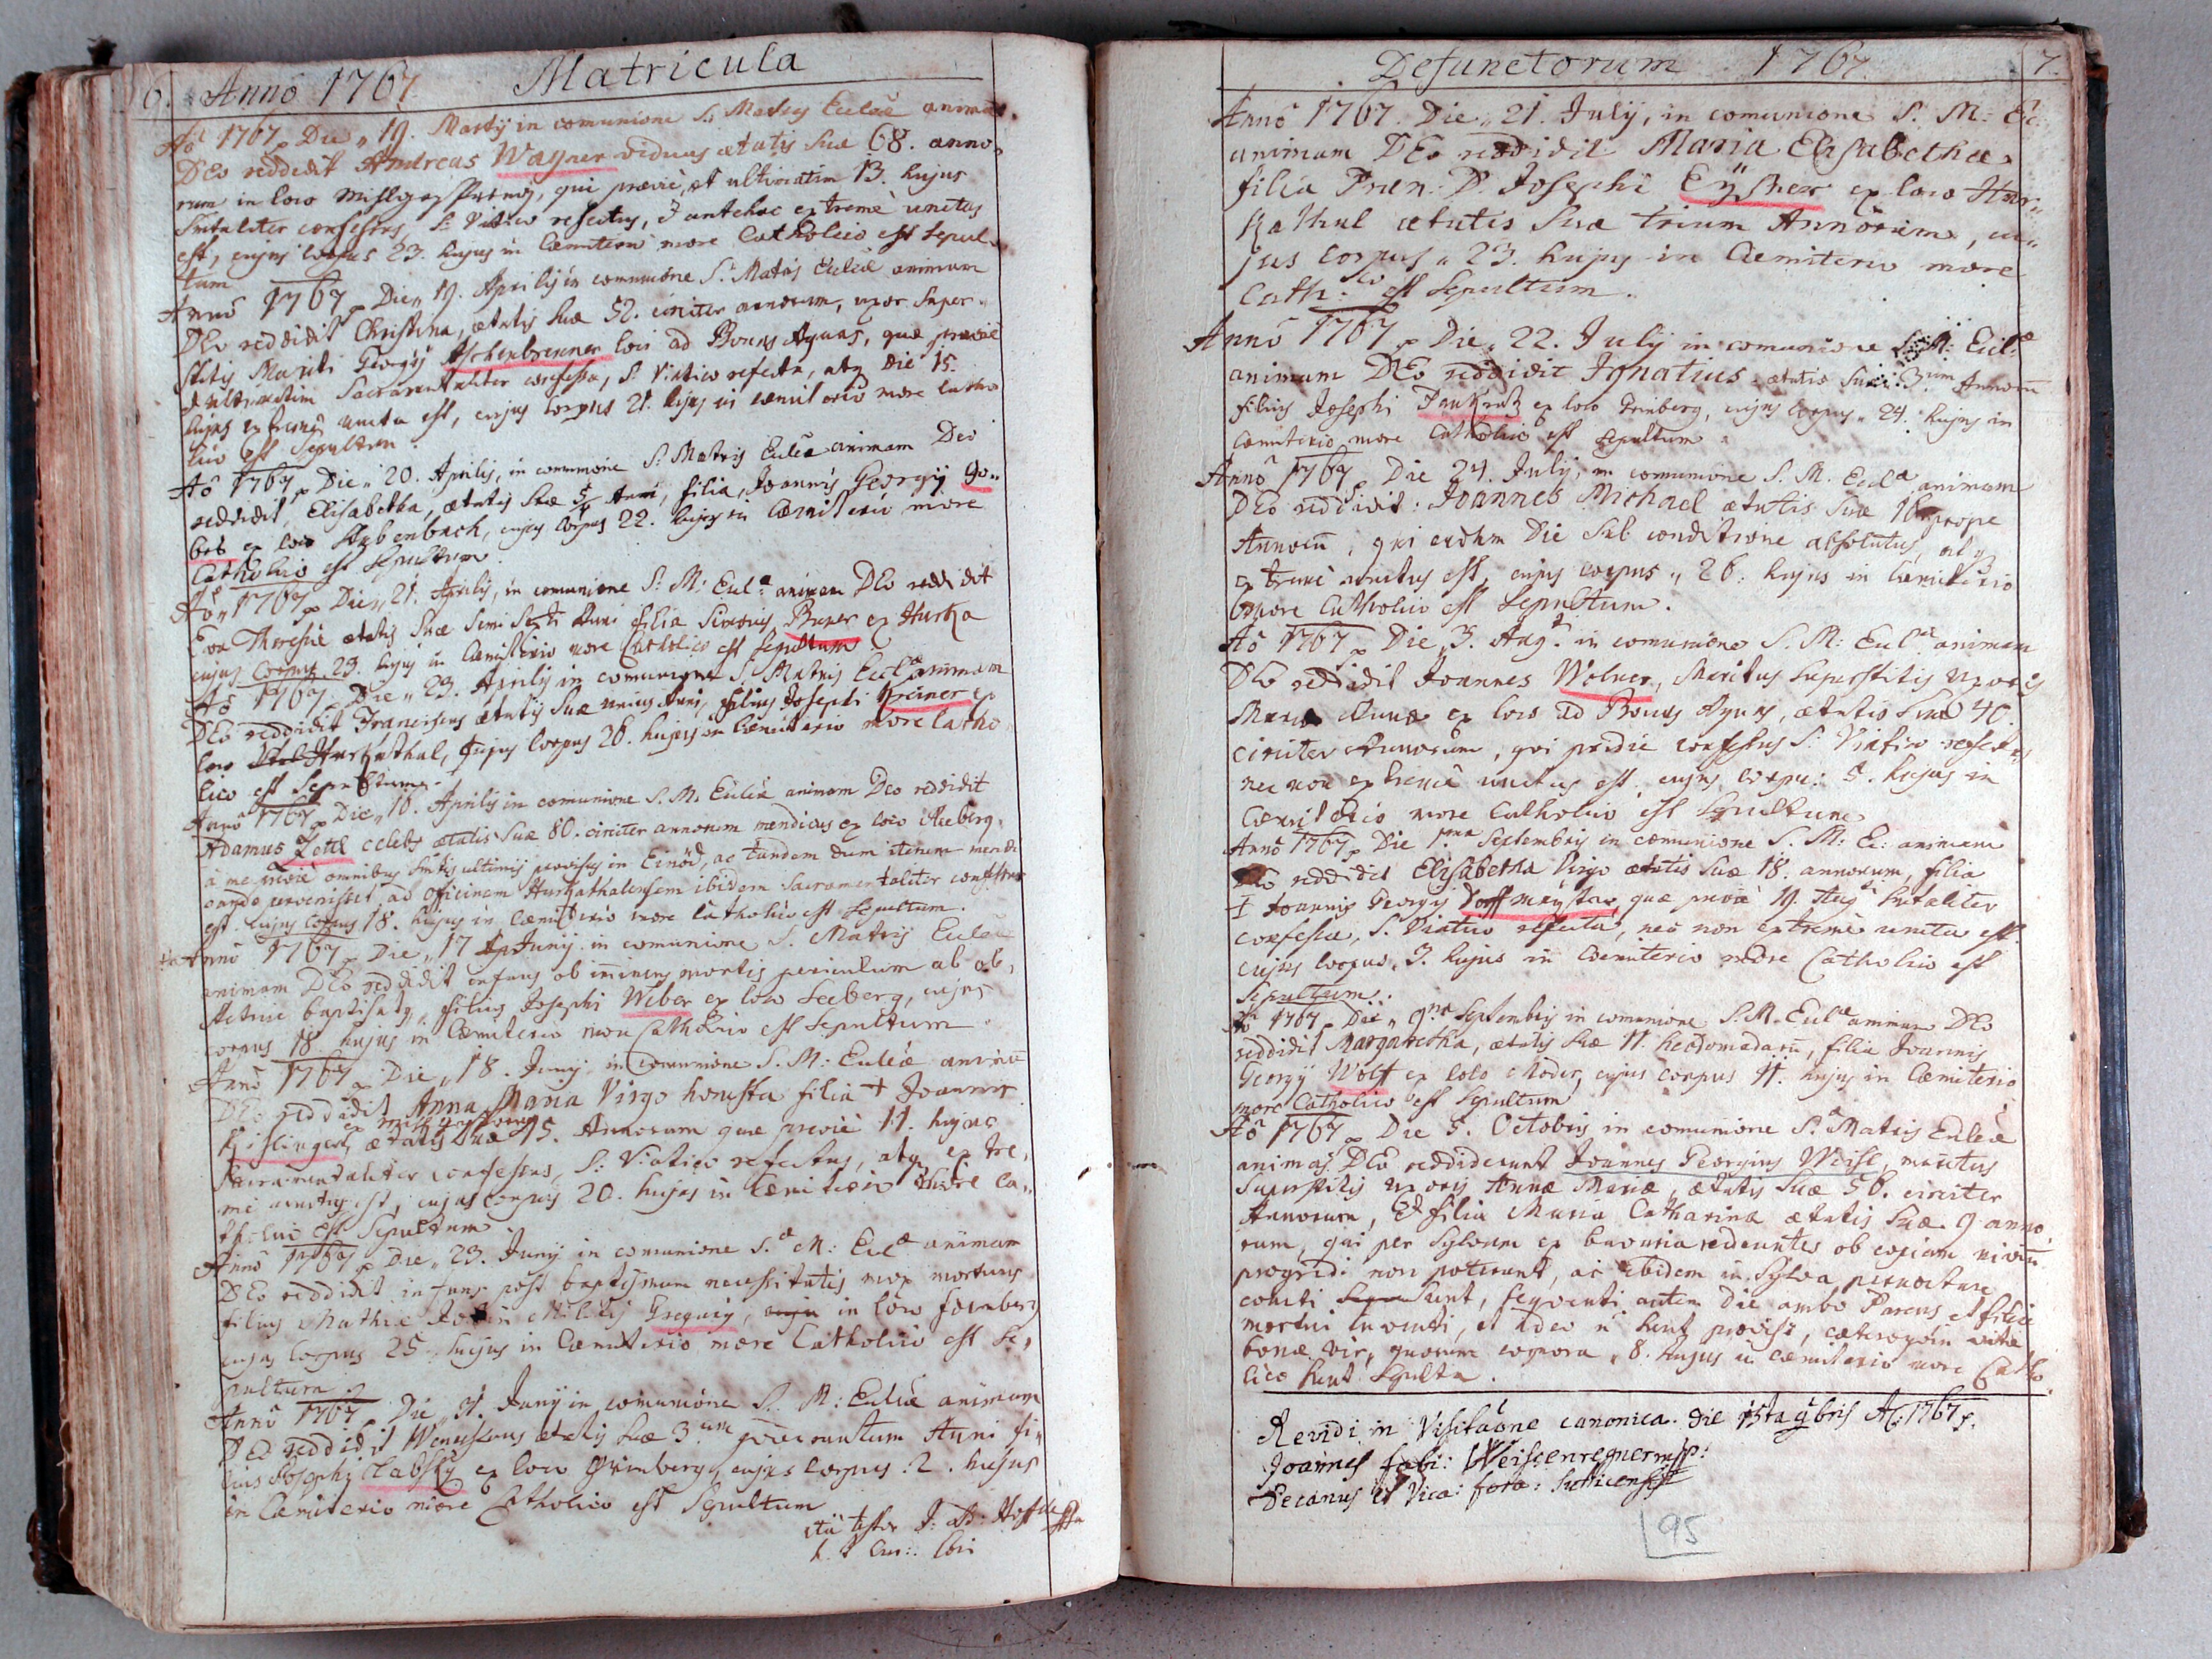 6. Anno 1767 Matricula
Aô 1767 Die 19. Martij in comunione S. Matris Eccläe animam
DEo reddidit Andreas Wagner viduus ætatis suæ 68. anno,
rum in loco, qui prævie, et ultimatim 13. hujus
confessus, S: Viatico refectus, extreme unctus
est, cujus corpus 23. hujus in Cœmiterio more Catholico est sepul,
tum
Anno 1767 Die 19. Aprilis in communione S: Matris Eccliæ animam
DEo reddidit Christina, ætatis suæ 52. circiter annorum, uxor super,
stitis Mariti Georgij Aschenbrenner loci ad Bonas Aquas, quæ prævie
& ultimatim Sacramentaliter confessa, S: Viatico refecta, atq die 15.
hujus extreme uncta est, cujus corpus 21. hujus in cœmiterio more catho
lico est Sepultum
Aô 1767 Die 20. Aprilis, in communione S: Matris Eccliæ animam Deo
reddidit, Elisabetha, ætatis suæ Anni, filia, Joannis Georgij Go,,
bes ex loco Stubenbach, cujus corpus 22. hujus in Cœmiterio more
Catholico est Sepultum.
Aô 1767 Die 21. Aprilis, in comunione S: M: Eclæ animam DEo reddidit
Eva Theresia ætatis suæ Anni filia Simonis ex Hurka
cujus Corpus 23. hujus in Cœmiterio more Catholico est sepultum
Aô 1767. Die 23. Aprilis in comunione S. Matris Eclæ animam
DEo reddidit Franciscus ætatis suæ unius Anni, filius Josephi Kreiner ex
loco Hurkathal, cujus Corpus 26. hujus in Cœmiterio more catho,
lico est Sepultum.
Anno 1767 Die 16. Aprilis in comunione S. M. Eccliæ animam Deo reddidit
Adamus Zettl celebs ætatis suæ 80. circiter annorum mendicus ex loco
à me prævie omnibus ultimis provisus in Einöd, ac tandem dum iterum mendi
cando pervenisset ad officinam Hurkathalensem ibidem Sacramentaliter confessus
est. cujus corpus 18. hujus in Cœmiterio more catholico est sepultum.
Anno 1767 Die 17 Junij in comunione S. Matris Eccliæ
animam DEo reddidit infans ob iminens mortis periculum ab ob,
stetrice baptisatq filius Josephi Weber ex loco Seeberg, cujus
corpus 18. hujus in Cœmiterio more Catholico est Sepultum.
Anno 1767 Die 18. Junij in Comunione S. M: Eccliæ animã
DEo reddidit Anna Maria Virgo honesta filia + Joannis
Kislinger, ætatis suæ 15. Annorum quæ prævie 11. hujus
Sacramentaliter confessus, S: Viatico refectus, atq extre,
me unctus est, cujus corpus 20. hujus in Cœmiterio more ca,,
tholico est Sepultum
Anno 1767 Die 23. Junij in comunione S. M: Eclæ animam
DEo reddidit infans post baptismum necessitatis mox mortuus
filius Mathiæ Militis Gregorij, in loco
cujus corpus 25. hujus in Cœmiterio more Catholico est se,
pultum
Anno 1767 Die 31. Junij in comunione S. M: Eccliæ animam
DEo reddidit Wenceslaus ætatis suæ 3um Anni fi,
lius Josephi ex loco Grünberg, cujus corpus 2. hujus
in Cœmiterio more Catholico est Sepultum
ita testor
Defunctorum 1767. 7.
Anno 1767. Die 21. Julij, in comunione S. M: Ec:
animam DEo reddidit Maria Elisabetha
filia Josephi Eÿsner ex loco Hur,,
kathal ætatis suæ trium Annorum, cu,,
jus Corpus 23. hujus in Cœmiterio more
Cath:co est Sepultum.
Anno 1767 Die 22. Julij in comunione S. M: Eclæ
animam DEo reddidit Ignatius ætatis suæ 3um Annorũ
filius Josephi Pankratz ex loco Grinberg, cujus Corpus 24. hujus in
Cœmiterio more Catholico est Sepultum.
Anno 1767 Die 24. Julij, in comunione S. M. Eclæ animam
DEo reddidit: Joannes Michael ætatis suæ 16 prope
Annorũ, qui eadem Die sub conditione absolutus, atq
extreme unctus est, cujus corpus 26. hujus in Cœmiterio
more Catholico est Sepultum.
Aô 1767 Die 3. Augti in comunione S. M: Eclæ animam
DEo reddidit Joannes Wolner, Maritus Superstitis Uxoris
Mariæ Annæ ex loco ad Bonas Aquas, ætatis suæ 40.
circiter Annorum, qui pridie confessus S: Viatico refectus
nec non extreme unctus est, cujus corpus 5. hujus in
Cœmiterio more Catholico est Sepultum
Anno 1767 Die 1ma Septembris in comunione S. M: Ec: animam
DEo reddidit Elisabetha Virgo ætatis suæ 18. annorum, filia
+ Joannis Georgij Dorffmeÿster, quæ prævie 19. Augti
confessa, S. Viatico refecta, nec non extreme uncta est.
cujus corpus 3. hujus in Cœmiterio more Catholico est
Sepultum.
Aô 1767 Die 9na Septembris in comunione S. M. Eclæ animam DEo
reddidit Margaretha, ætatis suæ 11. hebdomadarũ, filia Joannis
Georgij Wolff ex loco Mader, cujus corpus 11. hujus in Cœmiterio
more Catholico est Sepultum
Aô 1767 Die 5. Octobris in comunione S. Matris Eccleæ
animas DEo reddiderunt Joannes Georgius Weisl, maritus
Superstitis uxoris Annæ Mariæ, ætatis suæ 56. circiter
Annorum, Et filia Maria Catharina ætatis suæ 9 anno,
rum, qui per Sylvam ex bavaria redeuntes ob copiam niviũ
progredi non poterant, ac ibidem in Sylva pernoctare
coacti sunt, sequenti autem Die ambo Parens et filia
mortui inventi, et ideo n sunt provisi, cæteroquin vitæ
bonæ vir, quorum corpora 8. hujus in Cœmiterio more Catho,
lico sunt Sepulta.
Revidi in Visitaone canonica die 15ta 9bris Aô: 1767
Joannes
Decanus et Vica: fora: Sutticensis
95